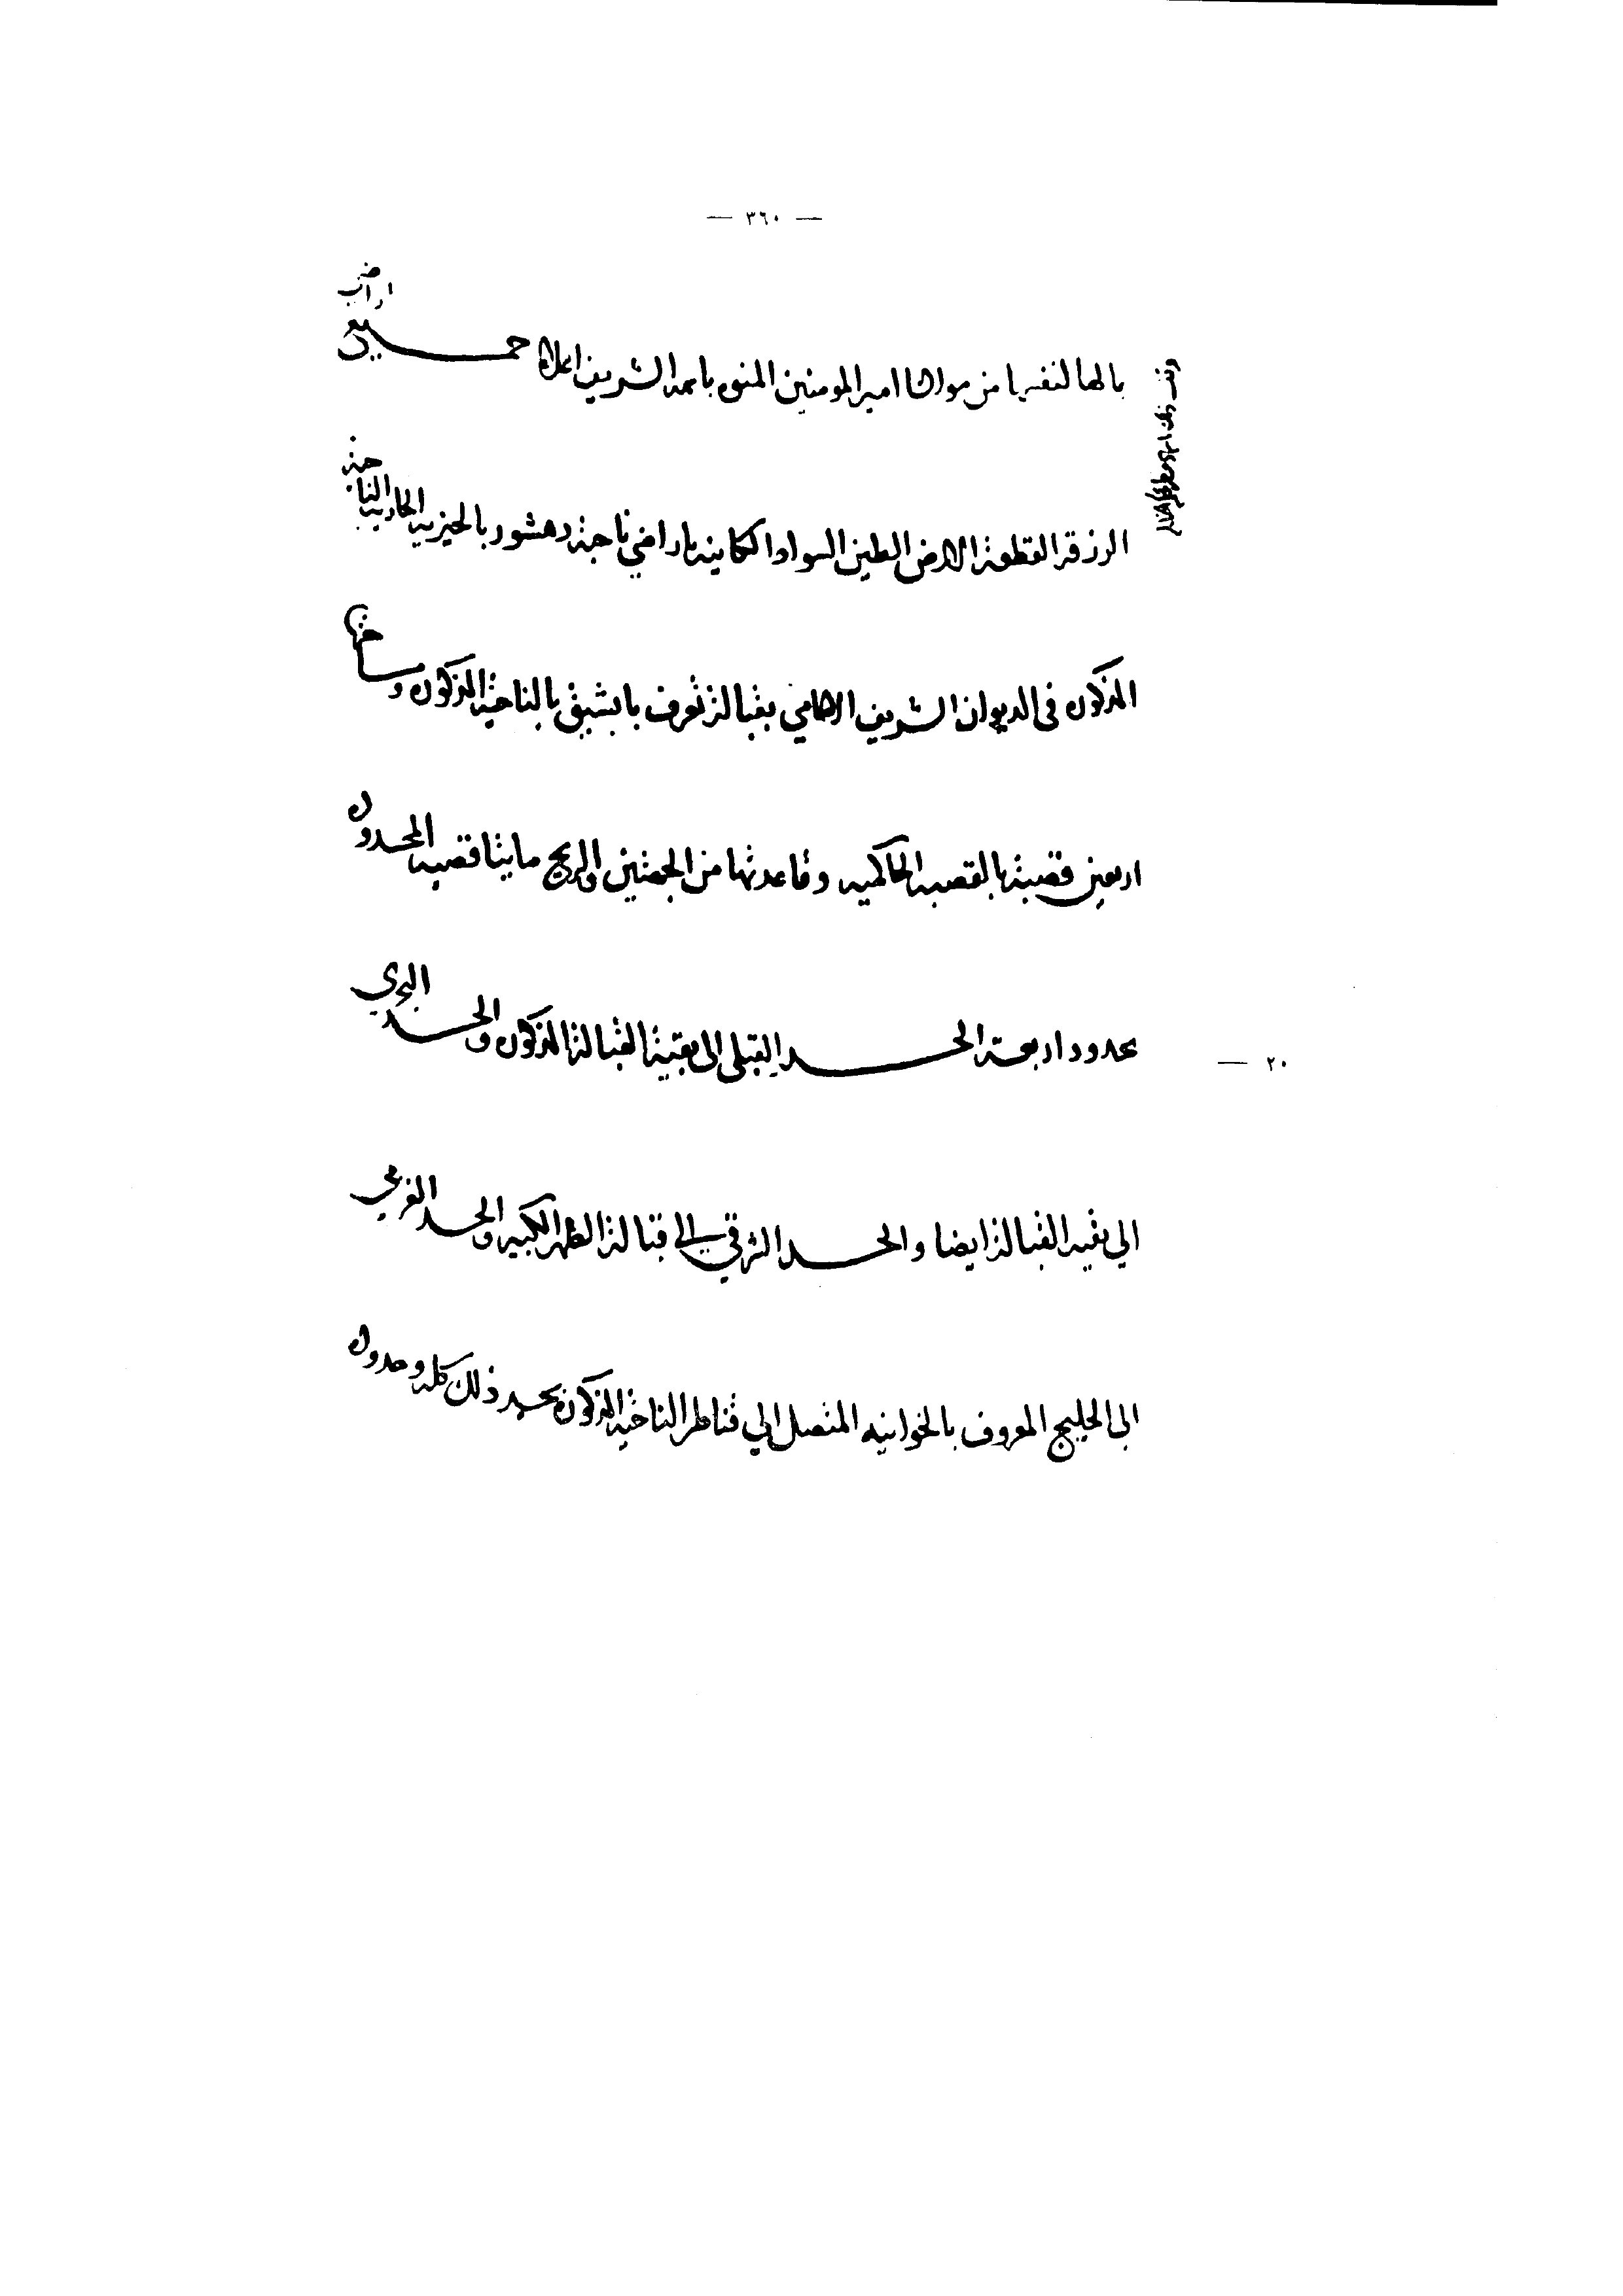 — ٣٦٠ —
بالها لنفسها من مولانا امير المومنين المنوه باسمه الشريف اعلاه جميع اراضي
الرزقه القطعة الارض الطين السواد الكاينه باراضي ناحية دهشور بالجيزيه الجاريه الناحية
المذكوره في الديوان الشريف الامامي بقبالة تعرف بابشيق بالناحية المذكوره ومساحتها
اربعين قصبة بالقصبه الحاكميه وقاعدتها من الجهتين والريح مايتا قصبه المحدوده
بحدود اربعة الحد القبلي الى بقية القبالة المذكوره والحد البحري
— ٢٠
الي بقيه القبالة ايضا والحد الشرقي الى قبالة الظهر الكبير والحد الغربي
الى الخليج المعروف بالخوانيه المتصل الي قناطر الناحيه المذكوره بحد ذلك كله وحدوده